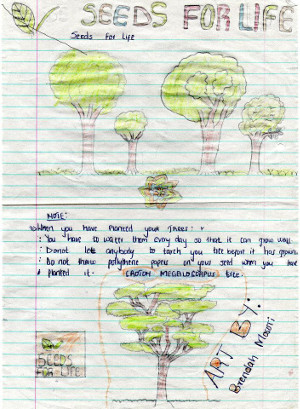 SEEDS FOR LIFE
Seeds For Life
NOTE:
When you have Planted your Trees:
: You have to water them every day so that it can grow well
: Do not let anybody to touch you tree before it has grown
: Do not throw polythene papers on your seed when you have
planted it. (CROTON MEGALOCARPUS) tree.
SEEDS
FOR LIFE
ART BY:
Brendah Moori